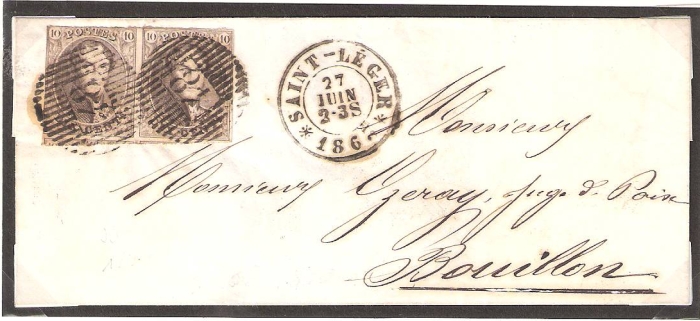 10 POSTES 10 10 POSTES 10
SAINT-LÉGER
27
JUIN
2-3S
186
Monsieur
Monsieur Ozeray, Juge de Paix
Bouillon